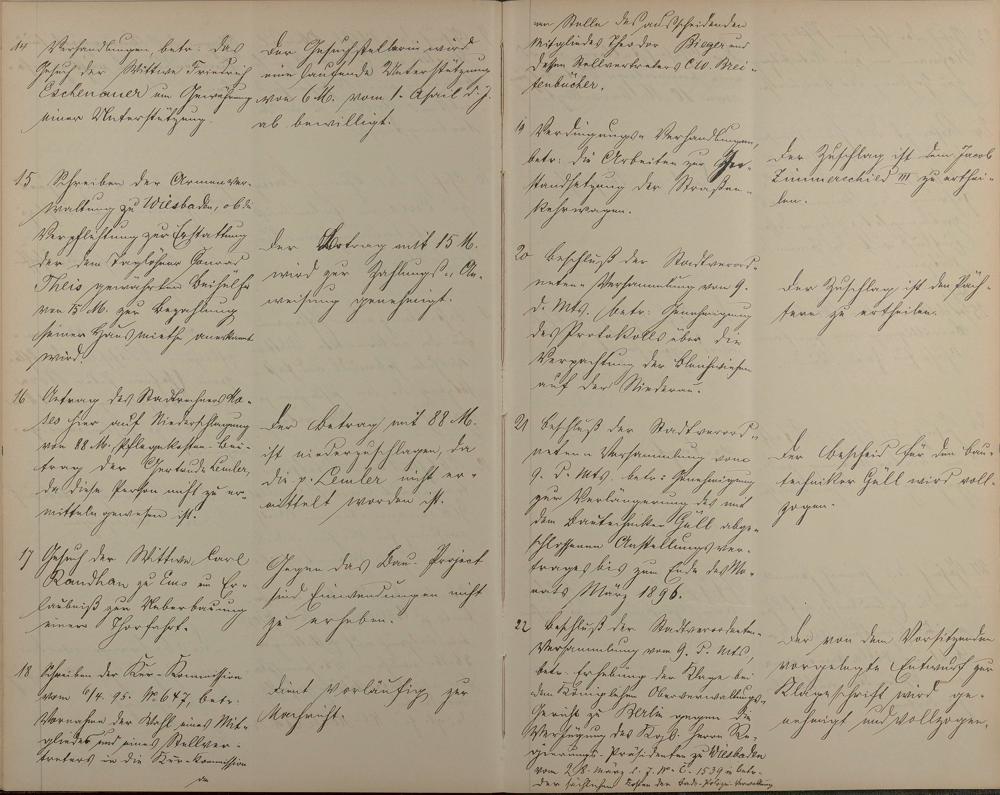 14 Verhandlungen, betr. das
Gesuch der Wittwe Friedrich
Eschenauer um Gewährung
einer Unterstützung.
Der Gesuchstellerin wird
eine laufende Unterstützung
von 6 M. vom 1. April d. J.
ab bewilligt.
15 Schreiben der Armenver-
waltung zu Wiesbaden, ob die
Verpflichtung zur Erstattung
der dem Taglöhner Conrad
Theis gewährten Beihülfe
von 15 M. zur Bezahlung
seiner Hausmiethe anerkannt
wird.
Der Betrag mit 15 M.
wird zur Zahlungs-An-
weisung genehmigt.
16 Antrag des Stadtrechners
hier auf Niederschlagung
von 88 M. Pflegekosten-Bei-
trag der Gertrude Lemler,
da diese Person nicht zu er-
mitteln gewesen ist.
Der Betrag mit 88 M.
ist niederzuschlagen, da
die p. Lemler nicht er-
mittelt worden ist.
17 Gesuch der Wittwe Carl
Randhan zu Ems um Er-
laubniß zur Ueberbauung
einer Thorfahrt.
Gegen das Bau-Project
sind Einwendungen nicht
zu erheben.
18 Schreiben der Kur-Kommission
vom 6/4. 95. No 647, betr.
Vornahme der Wahl eines Mit-
gliedes und eines Stellver-
treters in die Kur-Kommission
an
Dient vorläufig zur
Nachricht.
an Stelle des ausscheidenden
Mitgliedes Theodor Bieger und
dessen Stellvertreters C. W. Brei-
tenbücher.
19 Verdingungs-Verhandlungen,
betr: die Arbeiten zur In-
standsetzung der Straßen-
kehrwagen.
Der Zuschlag ist dem Jacob
Zimmerschied III zu erthei-
len.
20 Beschluß der Stadtverord-
neten-Versammlung vom 9.
d. Mts., betr: Genehmigung
des Protokolls über die
Verpachtung der Bleichwiesen
auf der Niederau.
Der Zuschlag ist den Päch-
tern zu ertheilen.
21 Beschluß der Stadtverord-
neten-Versammlung vom
9. d. Mts. betr: Genehmigung
zur Verlängerung des mit
dem Bautechniker Güll abge-
schlossenen Anstellungsver-
trages bis zum Ende des Mo-
nats März 1896.
Der Bescheid für den Bau-
techniker Güll wird voll-
zogen.
22 Beschluß der Stadtverordneten-
Versammlung vom 9. d. Mts,
betr. Erhebung der Klage bei
dem Königlichen Oberverwaltungs-
Gericht zu Berlin gegen die
Verfügung des Kgl. Herrn Re-
gierungs-Präsidenten zu Wiesbaden
vom 28. März l. J. No C. 1539 in betr.
der sächlichen Kosten der Bade-Polizei-Verwaltung
Der von dem Vorsitzenden
vorgelegte Entwurf zur
Klageschrift wird ge-
nehmigt und vollzogen.